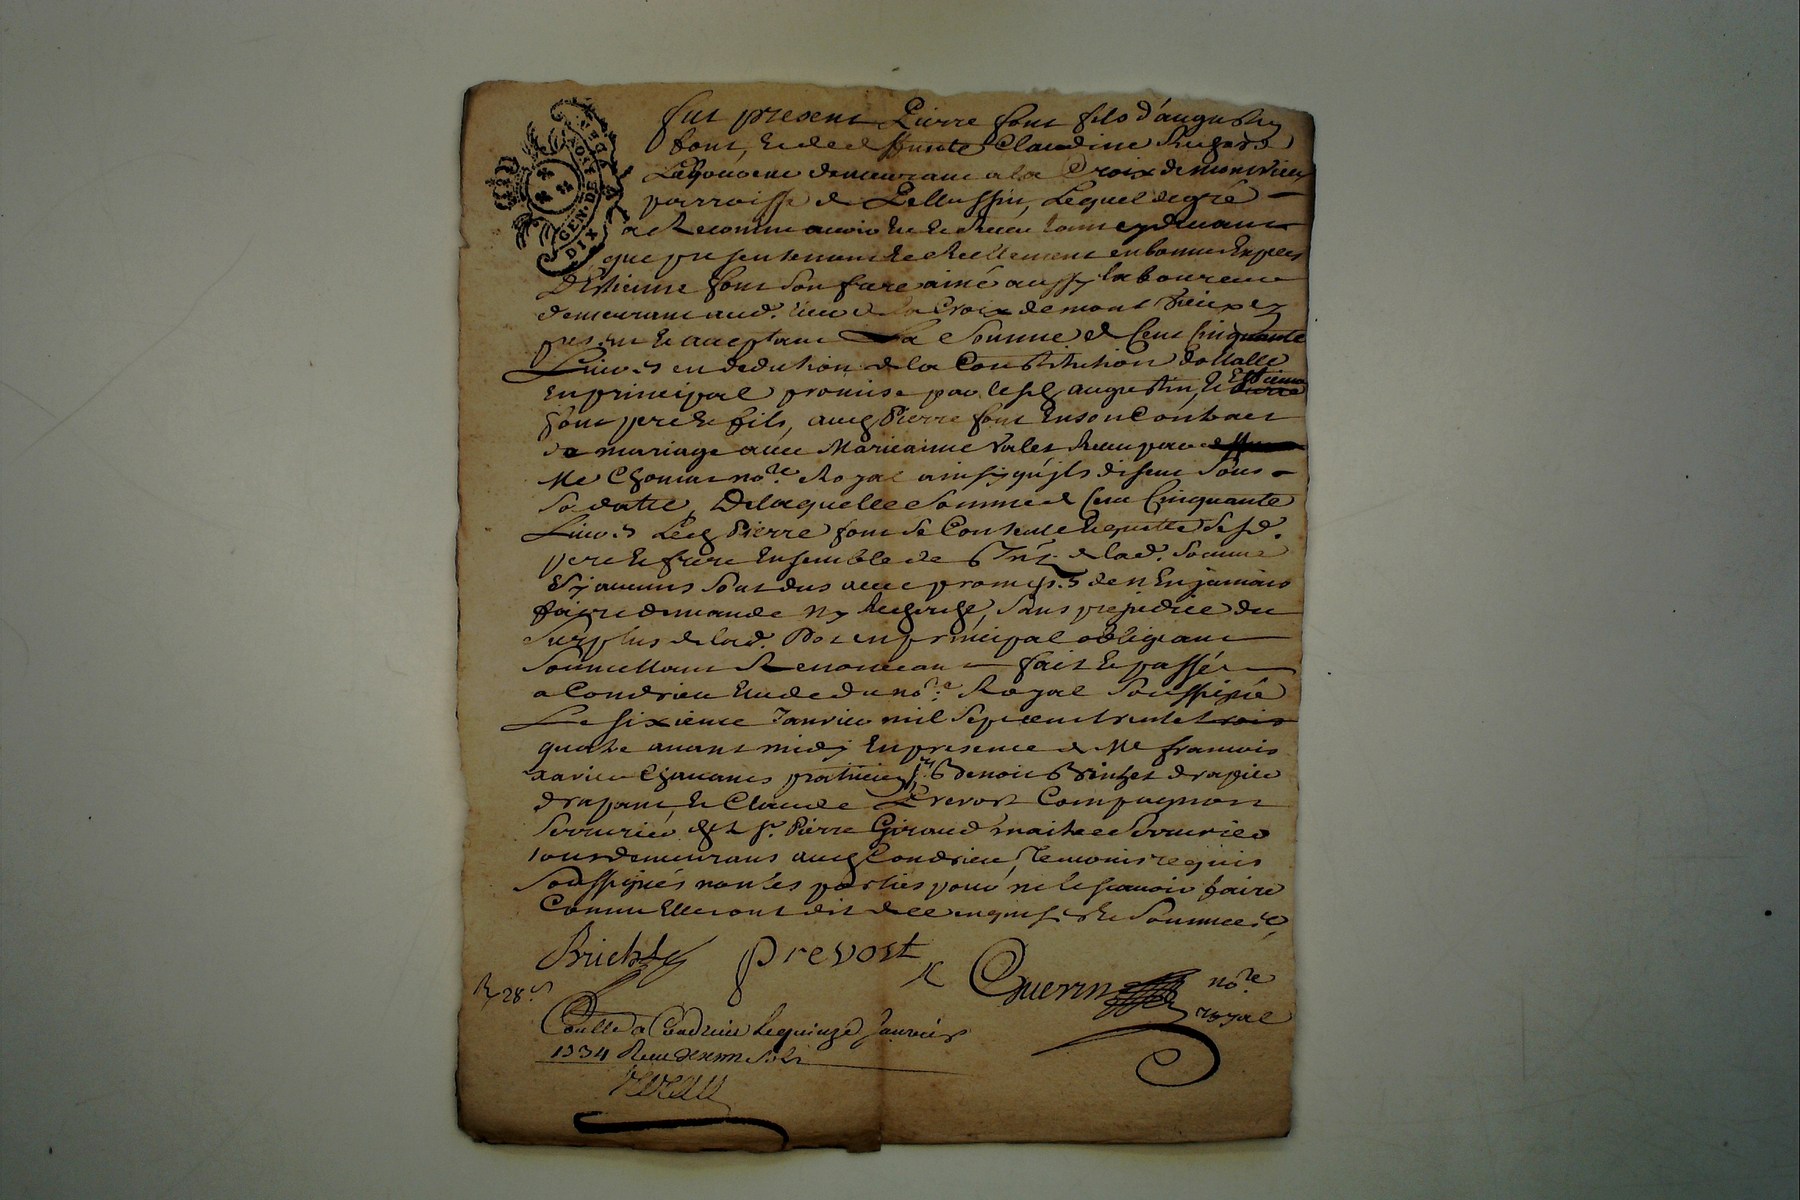 fut present Pierre font fils d'augustin
font, et de deffunte Claudine
Laboureur demeurant a la Croix de montvieux
parroisse de Pellussin, Lequel de gré
a Reconnu avoir eu et Receu
que presentement et Reellement en bonnes Especes
D'Estienne font son frere ainé aussy laboureur
demeurant aud. lieu de la Croix de mont vieux
present et acceptant La Somme de Cent Cinquante
Livres en dedution de la Constitution dottalle
En principal promise par lesd augustin, et Estienne
font pere et fils, aud Pierre font En son Contract
de mariage avec Marieanne Valet Receu par
Me Chomat nore Royal ainsy qu'ils disent Sous
Sa datte, De laquelle Somme de Cent Cinquante
Livres Led Pierre font Se Contente Et quitte Sesd.
pere et frere Ensemble de de lad. Somme
Sy aucuns Sont dus avec promesses de n'En jamais
faire demande ny Recherche, Sans prejudice du
Surplus de lad. Dot en principal obligeant
Soumettant Renonceant fait et passé
a Condrieu Etude du nore Royal Soussigné
Le Sixieme Janvier mil Sept cent trente trois
quatre avant midy En presence de Me francois
xavier Chavanes praticien Sr Benoit drapier
drapant, et Claude Prevost Compagnon
Serrurier Sr Pierre Giraud maitre Serrurier
tous demeurans aud Condrieu, Temoins requis
Soussignés non les parties pour ne le scavoir faire
Comme Elles ont dit de ce enquises et Sommées,
prevost
Guerin nore
royal
R 28 s
Conllé a Condrieu le quinze Janvier
1734 Receu Sols